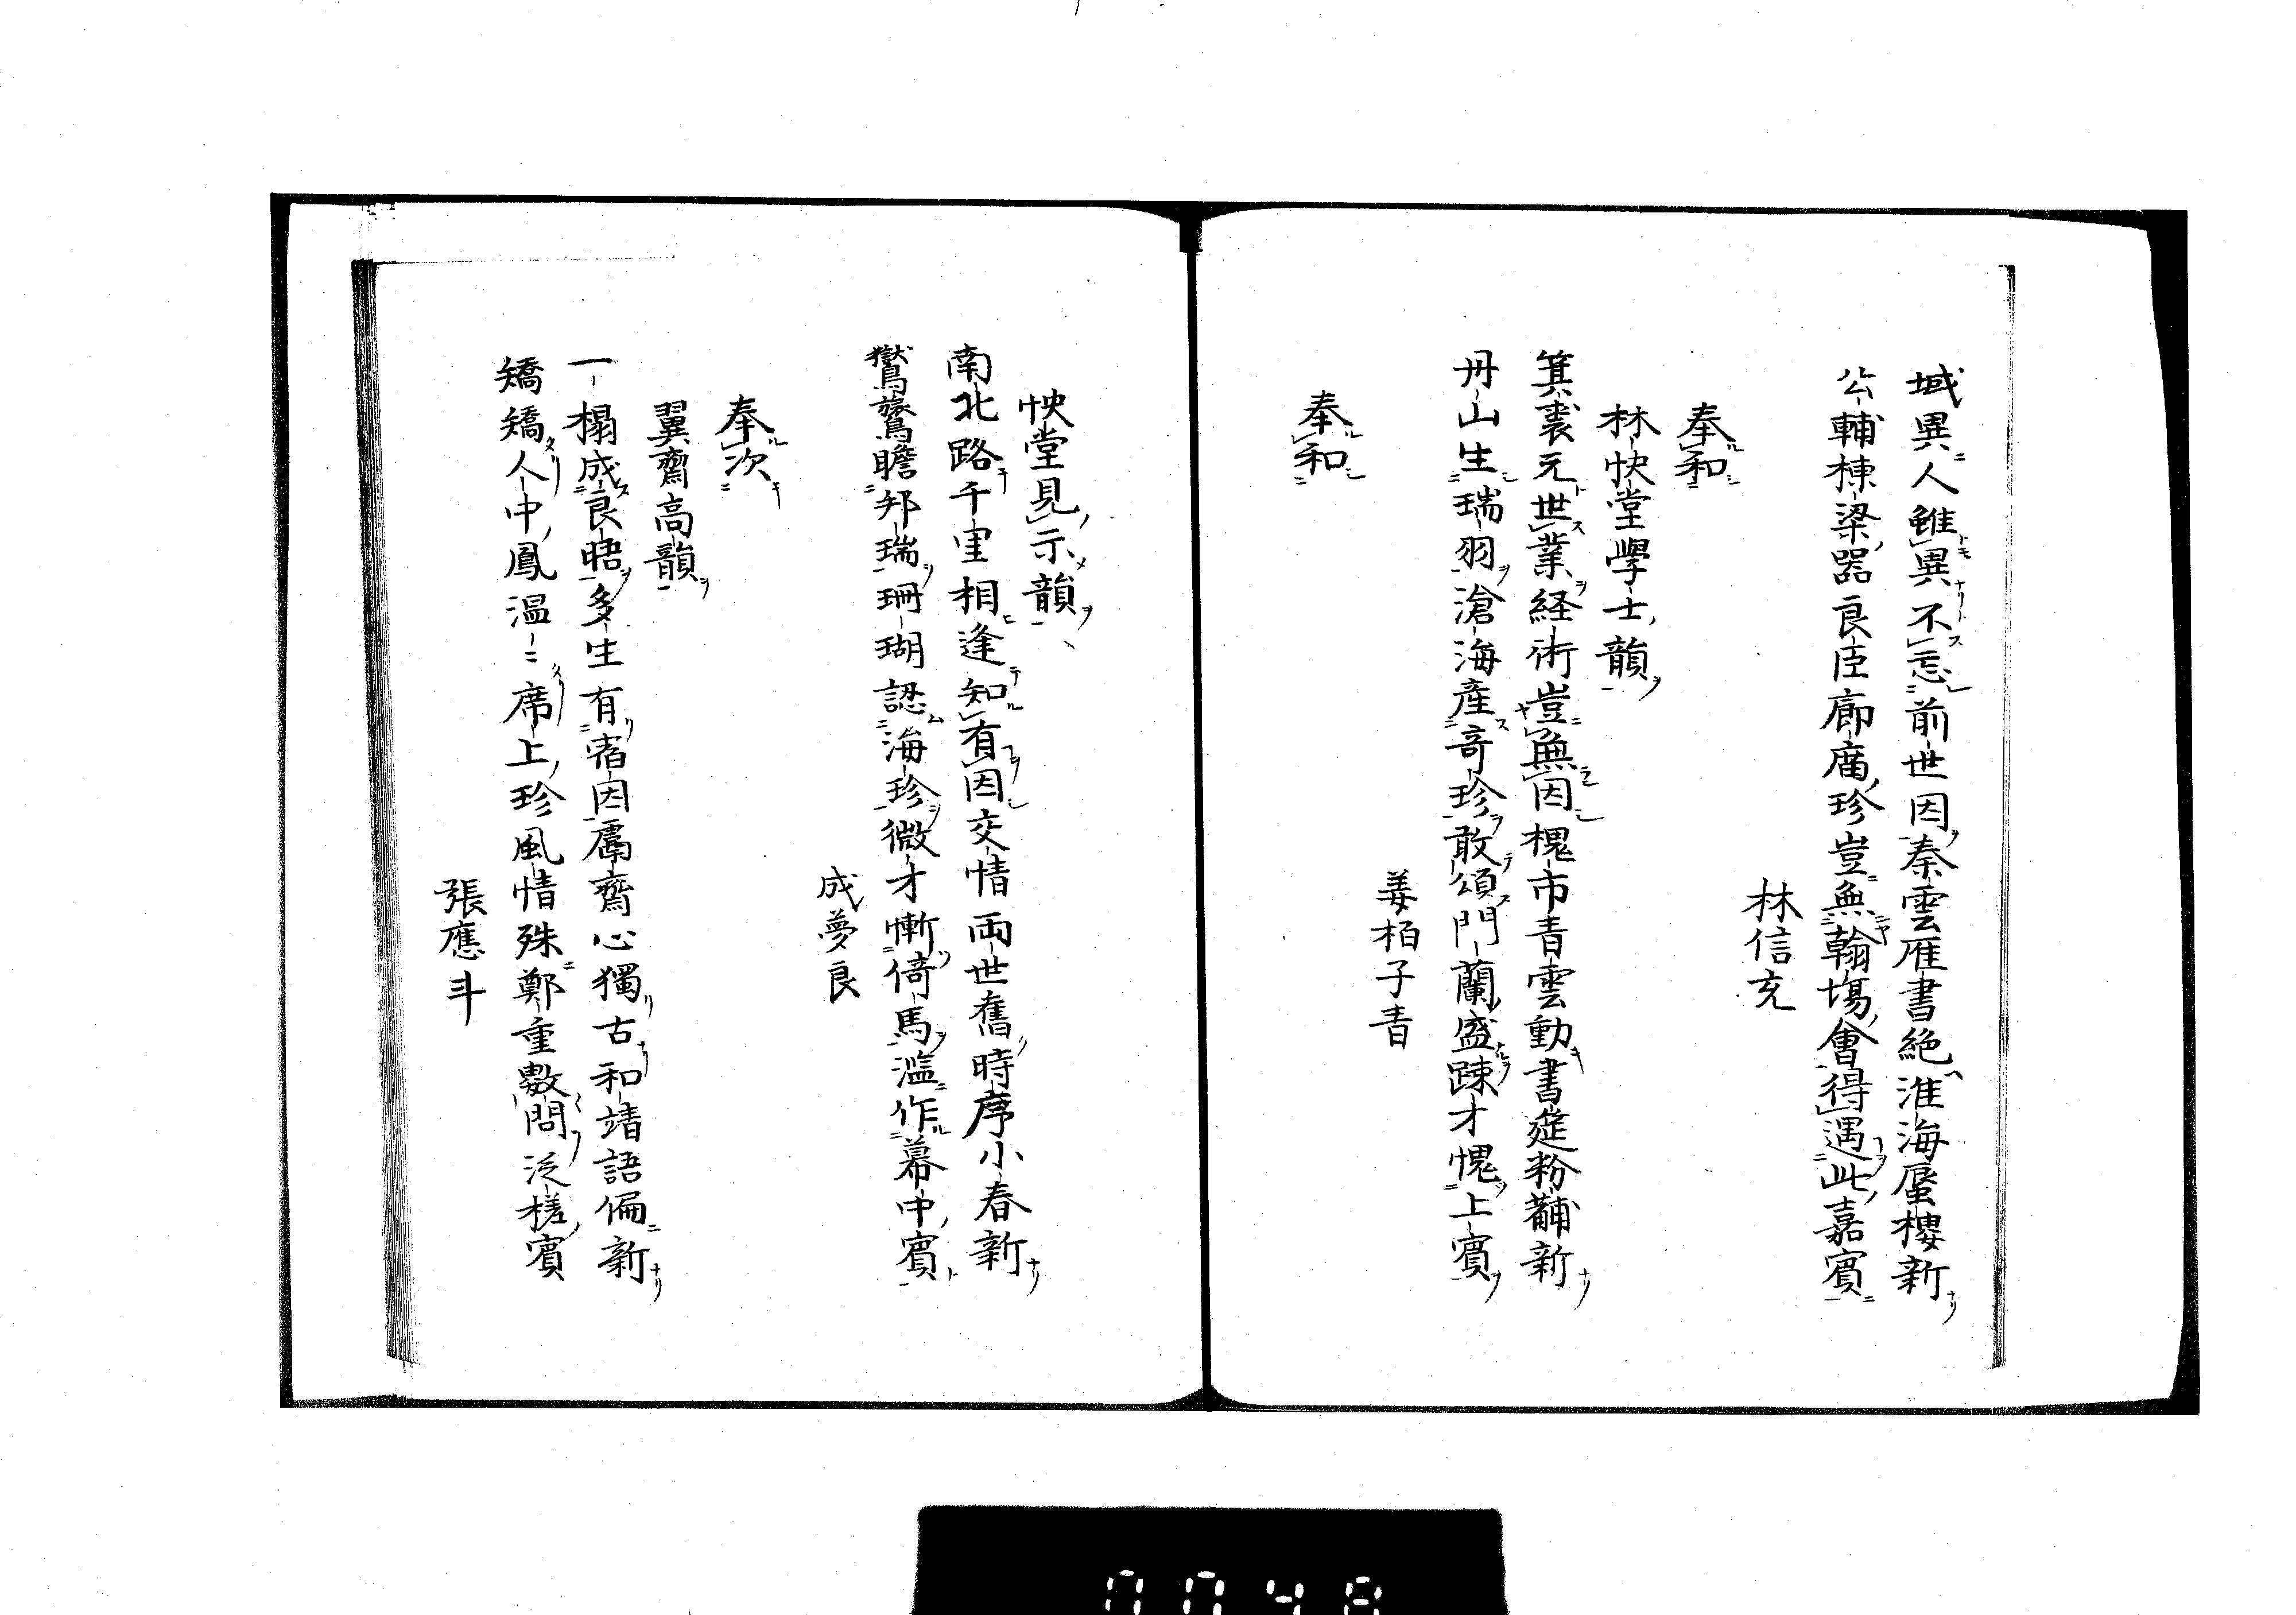 域異人雖異不忘前世因秦雲雁書絶淮海蜃樓新
公輔棟梁器良臣廊廟珍豈無翰場會得遇此嘉賓
林信充
奉和
林快堂學士韻
箕裘元世業経術豈無因槐市青雲動書筵粉黼新
丹山生瑞羽滄海産奇珍敢頌門蘭盛踈才愧上賓
姜栢子青
奉和
快堂見示韻
南北路千里相逢知有因交情両世舊時序小春新
鸑鷟瞻邦瑞珊瑚認海珍微才慚倚馬濫作幕中賓
成夢良
奉次
翼齋高韻
一榻成良晤多生有宿因齋心獨古和靖語偏新
矯矯人中鳳温〻席上珍風情殊鄭重數問泛槎賓
張應斗
0048